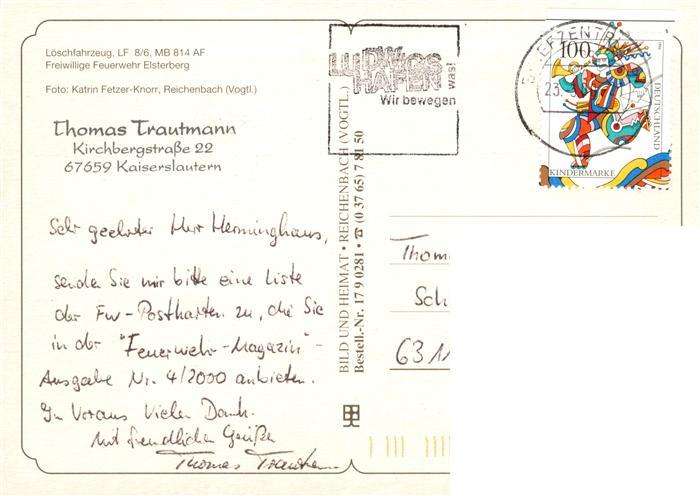 Löschfahrzeug, LF 8/6, MB 814 AF
Freiwillige Feuerwehr Elsterberg
Foto: Katrin Fetzer-Knorr, Reichenbach (Vogtl.)
Thomas Trautmann
Kirchbergstraße 22
67659 Kaiserslautern
Sehr geehrter Herr Herminghaus,
senden Sie mir bitte eine Liste
der Fw-Postkarten zu, die Sie
in der "Feuerwehr-Magazin"-
Ausgabe Nr. 4/2000 anbieten.
Im Voraus Vielen Dank.
Mit freundlichen Grüßen
Thomas Trautmann
BILD UND HEIMAT • REICHENBACH (VOGTL.)
Bestell.-Nr. 17 9 0281 • ☎ (0 37 65) 7 81 50
LUDWIGS
HAFEN
Wir bewegen was!
BRIEFZENTRUM
23.
100
DEUTSCHLAND
KINDERMARKE
Thom
Sch
6311